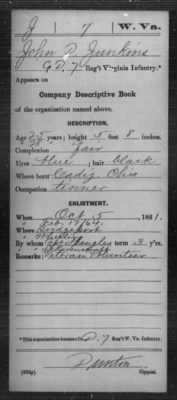 J 7 W. Va.
John P. Junkins
G.D. 7 Reg't Virginia Infantry.*
Appears on
Company Descriptive Book
of the organization named above.
DESCRIPTION.
Age 25 years; height 5 feet 8 inches.
Complexion Fair
Eyes blue; hair black
Where born Cadiz Ohio
Occupation tinner
ENLISTMENT.
When Oct 5, 1861.
Where Bridgeport
By whom term 3 y'rs.
Remarks: Veteran Volunteer
*This organization became Co. D. 7
Reg't W. Va. Infantry.
Copyist.